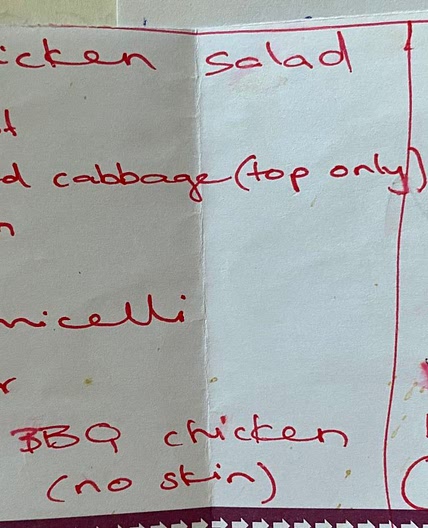 icken salad
t
d cabbage (top only)
n
micelli
r
BBQ chicken
(no skin)